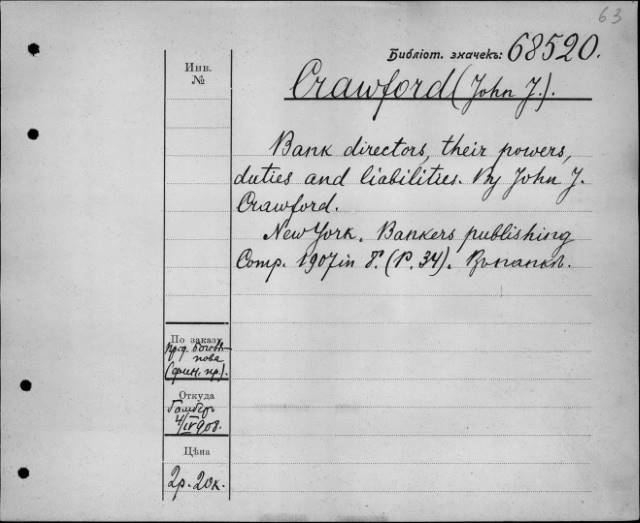 63
Библіот. значекъ: 68520.
Инв.
№
Crawford (John J.).
Bank directors, their powers,
duties and liabilities. By John J.
Crawford.
New York. Bankers publishing
Comp. 1907 in 8º. (P. 34). Въ папкѣ.
По заказу
(фин. пр.).
Откуда
4/IV 908.
Цѣна
2р. 20к.